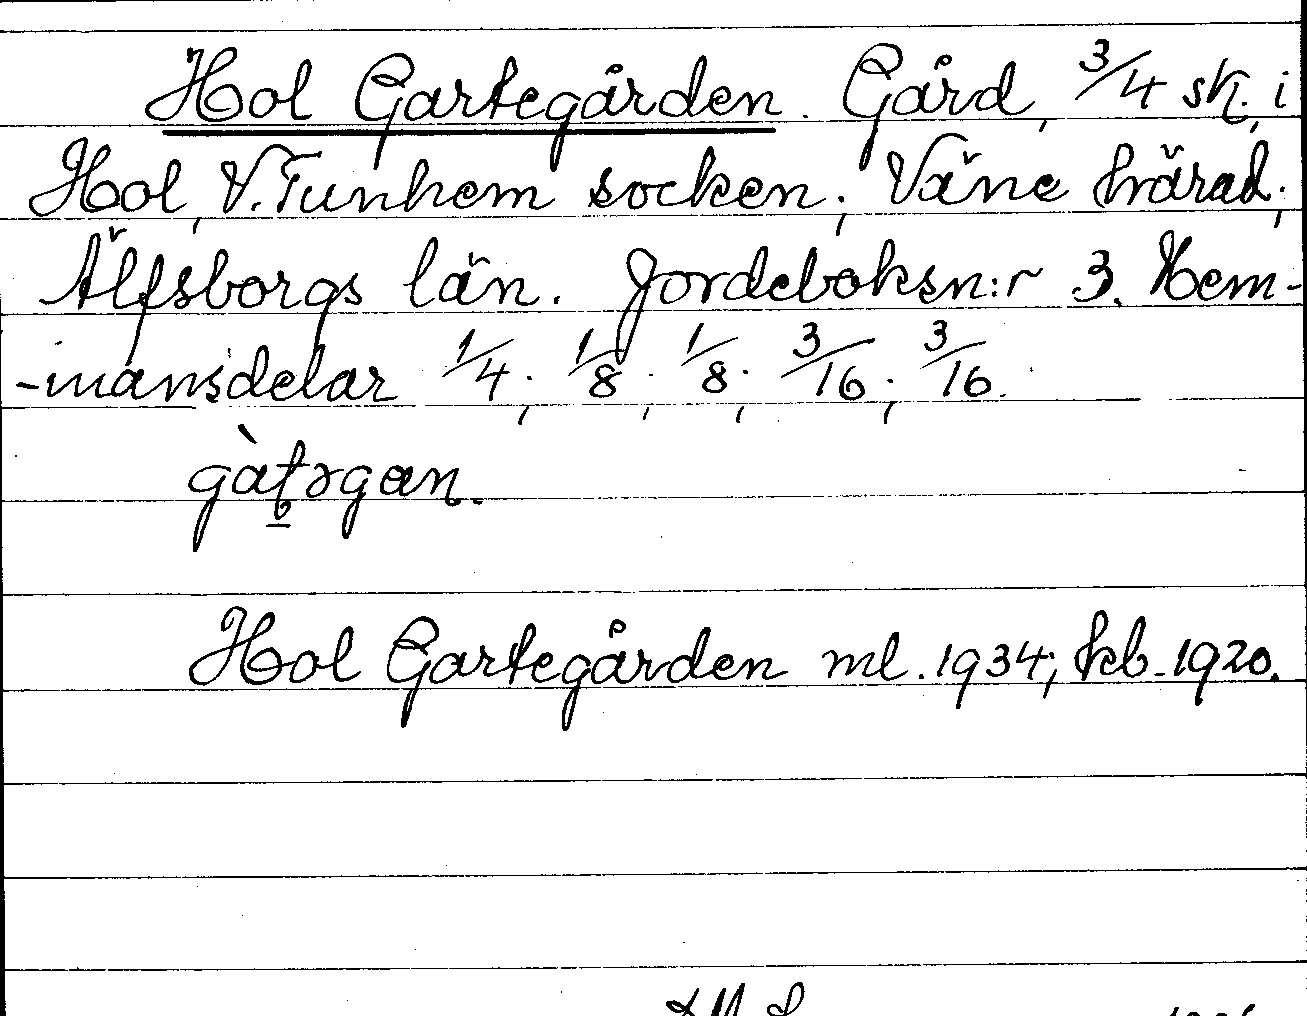 Hol Gartegården. Gård, 3/4 sk., i
Hol, V. Tunhem socken, Väne härad,
Älfsborgs län. Jordeboksn:r 3. Hem-
-mansdelar 1/4, 1/8, 1/8, 3/16, 3/16.
Hol Gartegården ml. 1934, kb. 1920.